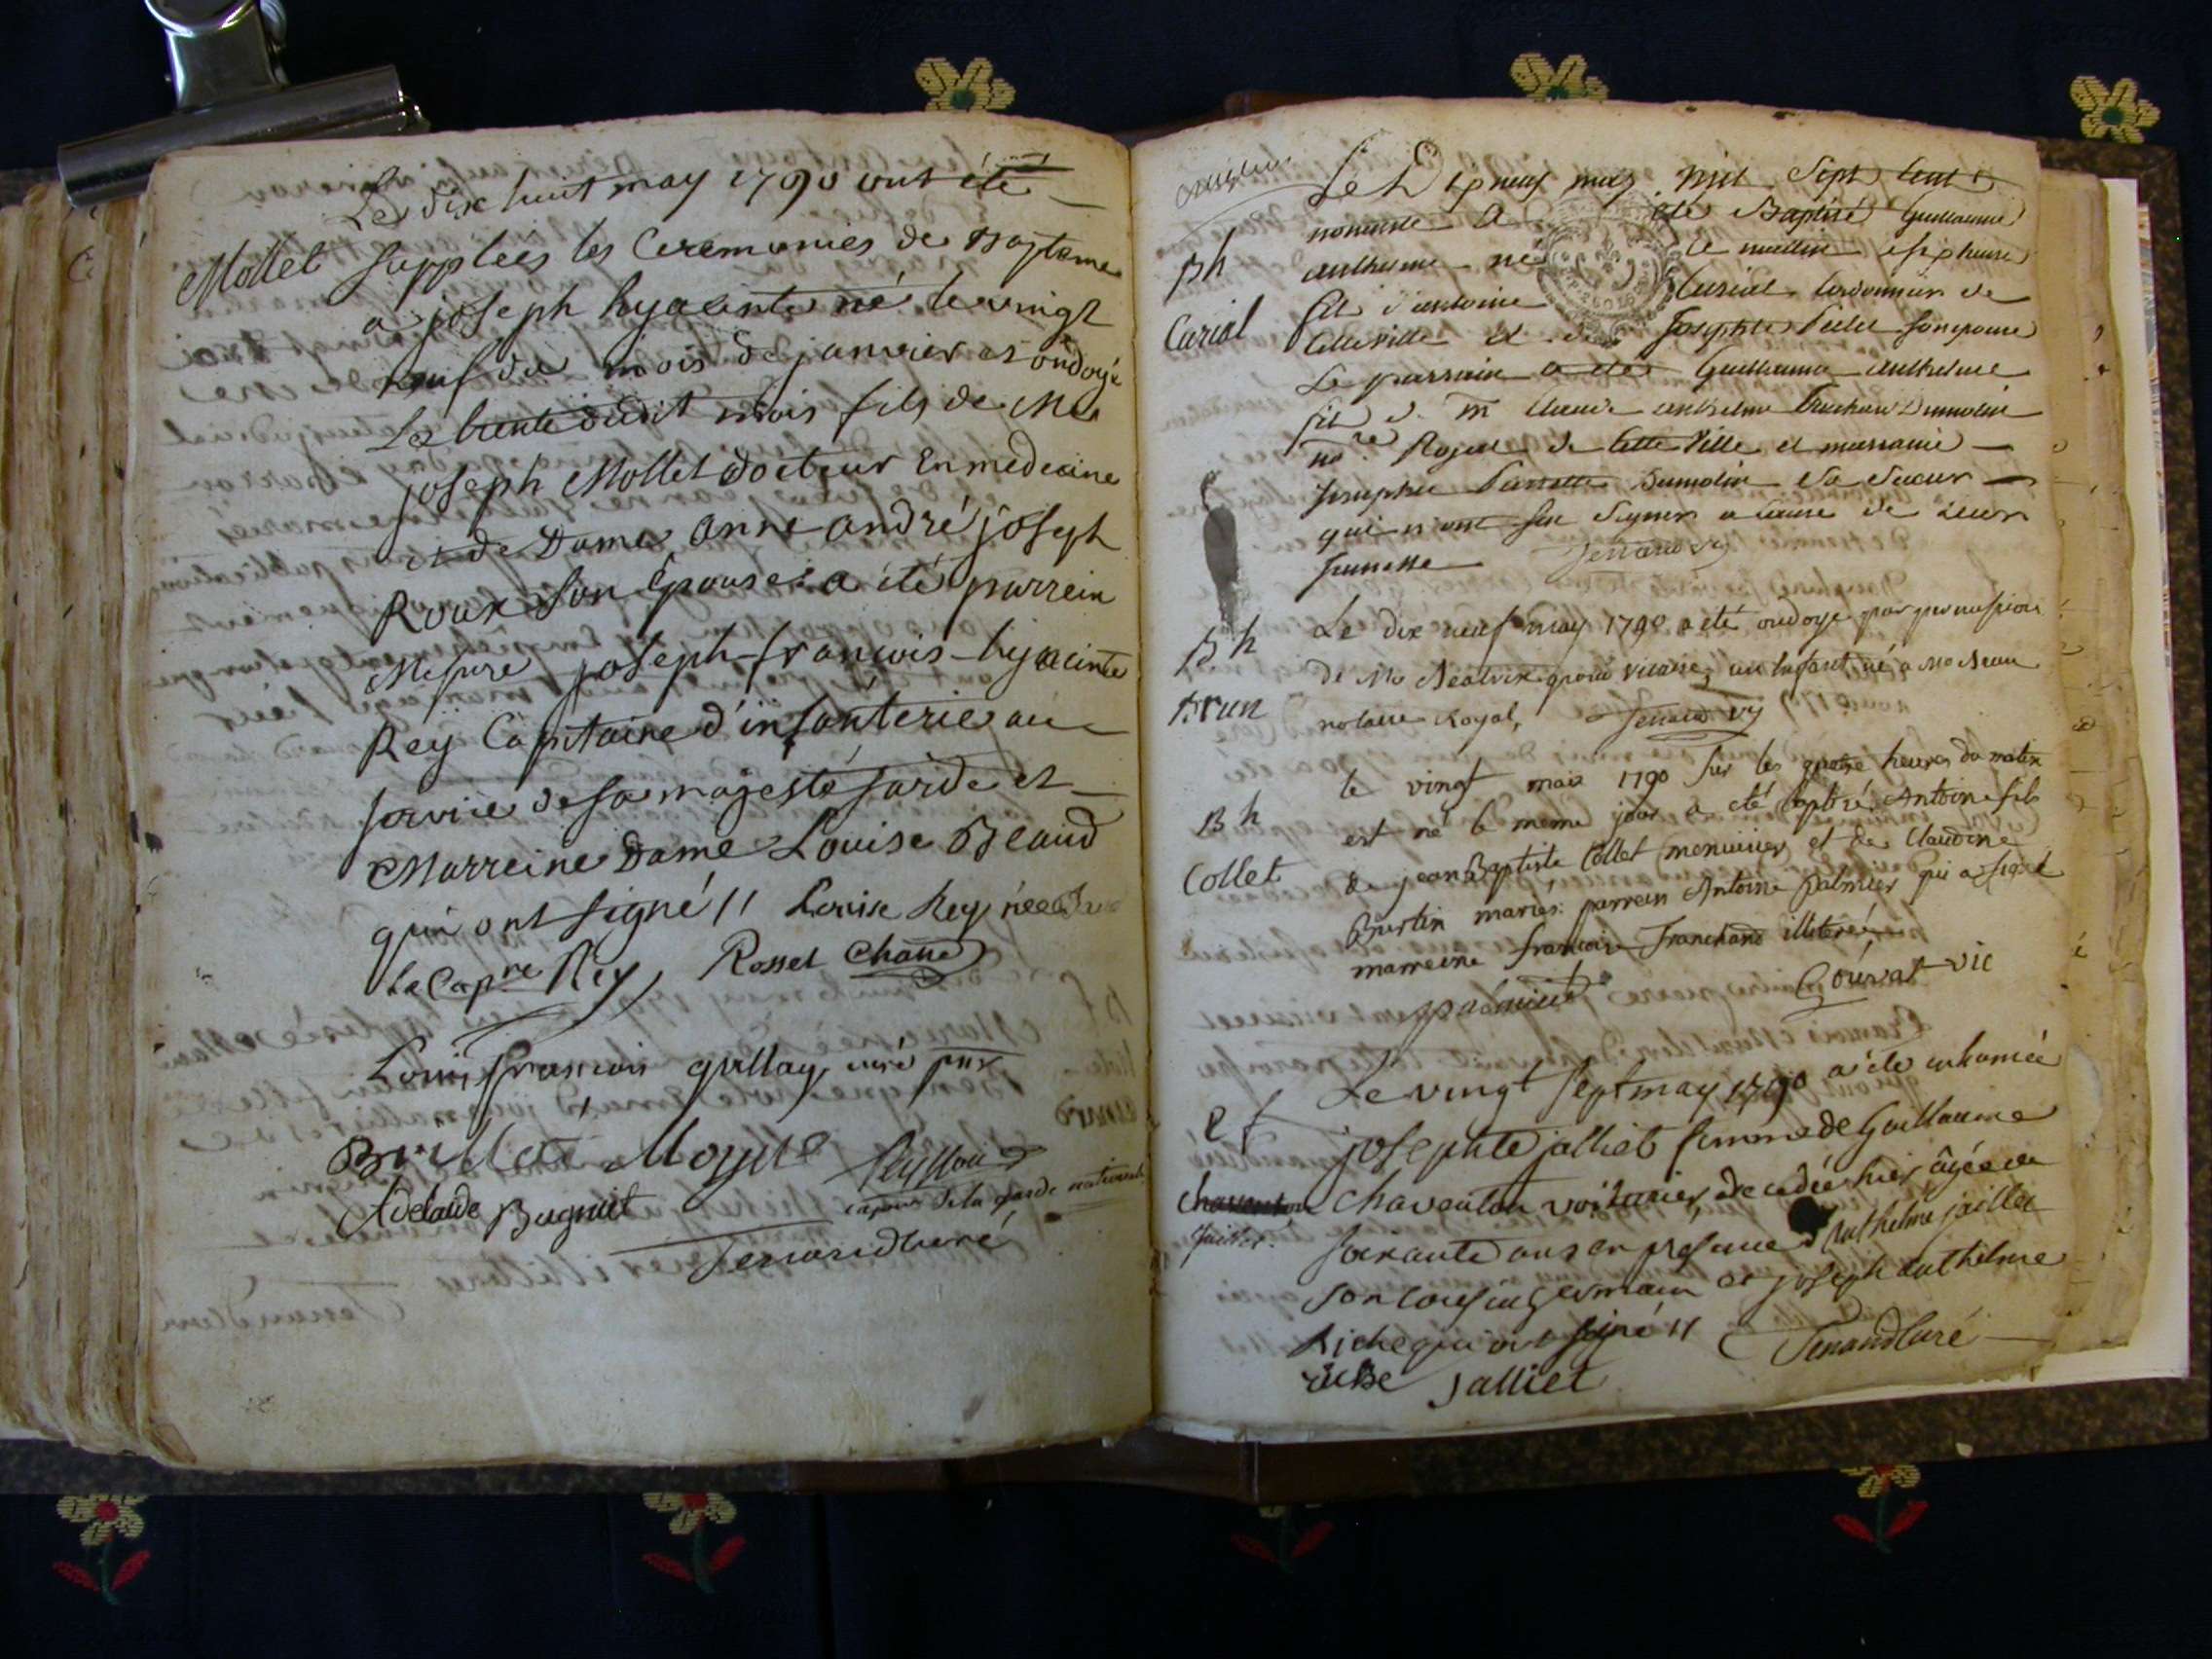 Le dix huit may 1790 ont été
Mollet supplées les Ceremonies de Bapteme
a joseph hyacinte né le vingt
neuf du mois de janvier et ondoyé
Le trente dudit mois fils de Me
joseph Mollet docteur En medecine
et de Dame anne andré joseph
Roux son Epouse a été parrein
Messire joseph-francois-hyacinte
Rey Capitaine d'infanterie au
service de sa majesté sarde et
Marreine Dame Louise Beaud
qui ont signé // Louise Rey née
Le Capne Rey Rosset
Louis francois curé
Adelaide Bugniet de la garde nationale
curé
Le mil Sept Cent
nonante a été Baptisé Guillaume
Bh anthelme né le matin
Carial fils d'antoine Cordonnier de
Cette ville et de Josephte son epouse
Le parrain a été Guillaume anthelme
fils d. m. Claude anthelme Dumolin
nore Royal de Cette Ville et marraine
Josephte Dumolin Sa Soeur
qui n'ont Su Signer a Cause de Leur
Jeunesse
Bh Le dix neuf may 1790 a été ondoyé par permission
de Mr vicaire, un Enfant né a Mr Brun
Brun notaire Royal,
le vingt mai 1790 sur les quatre heures du matin
Bh est né le meme jour a eté baptisé Antoine fils
Collet de jean Baptiste Collet menuisier et de Claudine
Burtin mariés: parrein Antoine palmier qui a signé
marreine francoise Tranchand illiterée
Gourat vic
Le vingt sept may 1790 a été inhumée
josephte jalliet femme de Guillaume
Chaventon voiturier, decedée hier âgée de
soixante ans en presence d'Anthelme jaillet
son cousin germain et joseph anthelme
Riche qui ont signé //
riche jalliet